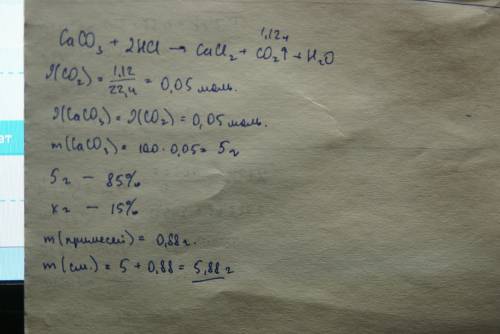 1,12л
CaCO₃ + 2HCl → CaCl₂ + CO₂↑ + H₂O
ν(CO₂) = 1,12/22,4 = 0,05 моль.
ν(CaCO₃) = ν(CO₂) = 0,05 моль.
m(CaCO₃) = 100 · 0,05 = 5 г
5 г — 85%
x г — 15%
m(примесей) = 0,88 г.
m(см.) = 5 + 0,88 = 5,88 г